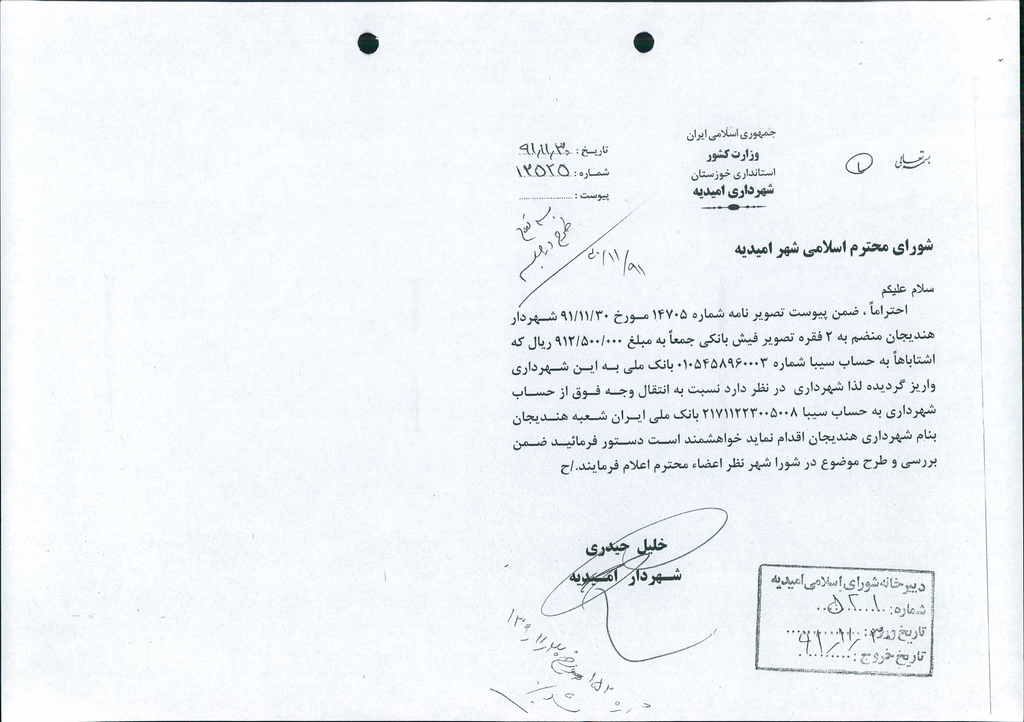 بسمه تعالی
۱
جمهوری اسلامی ایران
وزارت کشور
استانداری خوزستان
شهرداری امیدیه
تاریخ : ۹۱/۱۱/۳۰
شماره : ۱۳۵۲۵
پیوست : ....................
۹۱/۱۱/۳۰
شورای محترم اسلامی شهر امیدیه
سلام علیکم
احتراماً ، ضمن پیوست تصویر نامه شماره ۱۴۷۰۵ مورخ ۹۱/۱۱/۳۰ شهردار
هندیجان منضم به ۲ فقره تصویر فیش بانکی جمعاً به مبلغ ۹۱۲/۵۰۰/۰۰۰ ریال که
اشتاباهاً به حساب سیبا شماره ۰۱۰۵۴۵۸۹۶۰۰۰۳ بانک ملی به این شهرداری
واریز گردیده لذا شهرداری در نظر دارد نسبت به انتقال وجه فوق از حساب
شهرداری به حساب سیبا ۲۱۷۱۱۲۲۳۰۰۵۰۰۸ بانک ملی ایران شعبه هندیجان
بنام شهرداری هندیجان اقدام نماید خواهشمند است دستور فرمائید ضمن
بررسی و طرح موضوع در شورا شهر نظر اعضاء محترم اعلام فرمایند./ح
خلیل حیدری
شهردار امیدیه
دبیرخانه شورای اسلامی امیدیه
شماره:
تاریخ ورود:
تاریخ خروج: